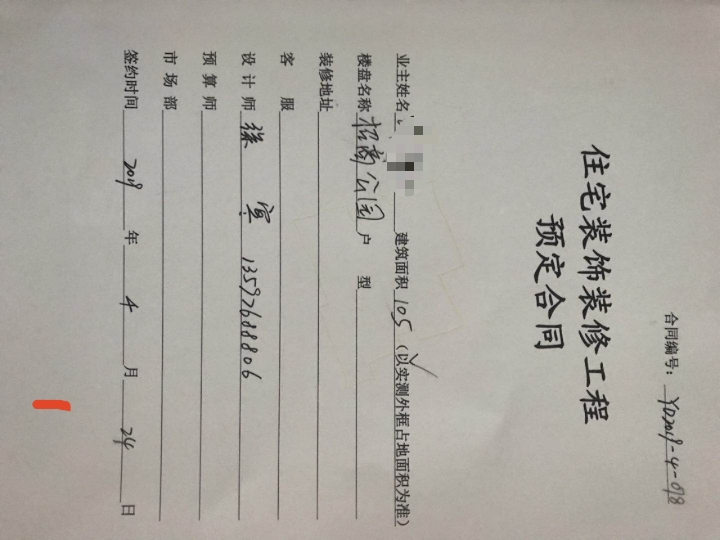 合同编号：YD2019-4-098
住宅装饰装修工程
预定合同
业主姓名 建筑面积 105 （以实测外框占地面积为准）
楼盘名称 招商公园 户 型
装修地址
客 服
设计师 徐 寞 13597688806
预算师
市场部
签约时间 2019 年 4 月 24 日